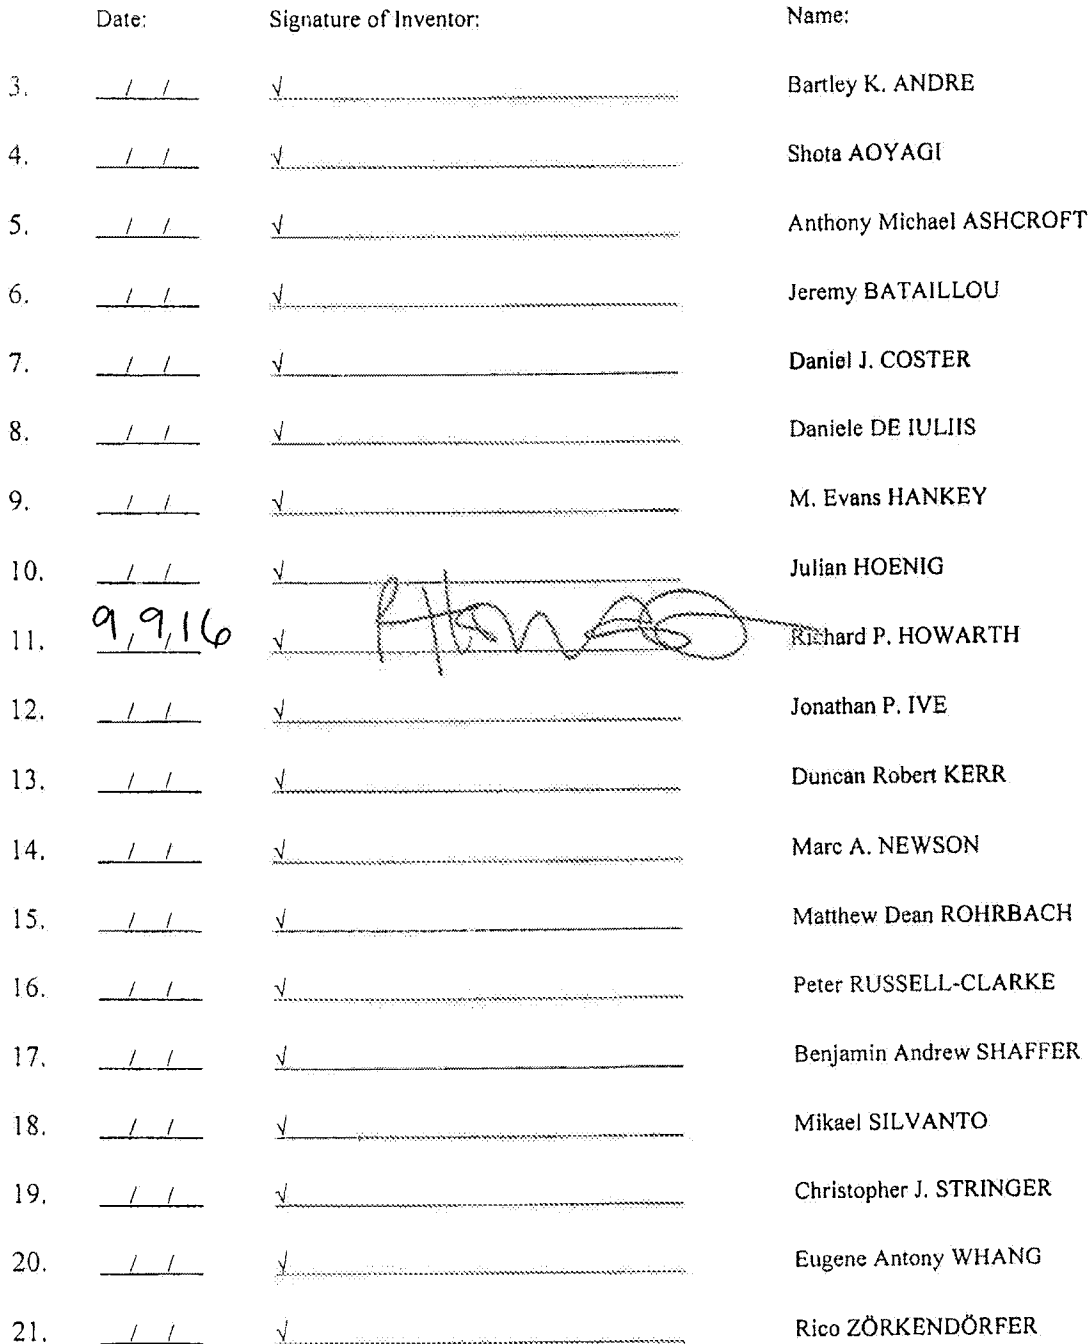 Date: Signature of Inventor: Name:
3. / / √ Bartley K. ANDRE
4. / / √ Shota AOYAGI
5. / / √ Anthony Michael ASHCROFT
6. / / √ Jeremy BATAILLOU
7. / / √ Daniel J. COSTER
8. / / √ Daniele DE IULIIS
9. / / √ M. Evans HANKEY
10. / / √ Julian HOENIG
11. 9/9/16 √ Richard P. HOWARTH
12. / / √ Jonathan P. IVE
13. / / √ Duncan Robert KERR
14. / / √ Marc A. NEWSON
15. / / √ Matthew Dean ROHRBACH
16. / / √ Peter RUSSELL-CLARKE
17. / / √ Benjamin Andrew SHAFFER
18. / / √ Mikael SILVANTO
19. / / √ Christopher J. STRINGER
20. / / √ Eugene Antony WHANG
21. / / √ Rico ZÖRKENDÖRFER